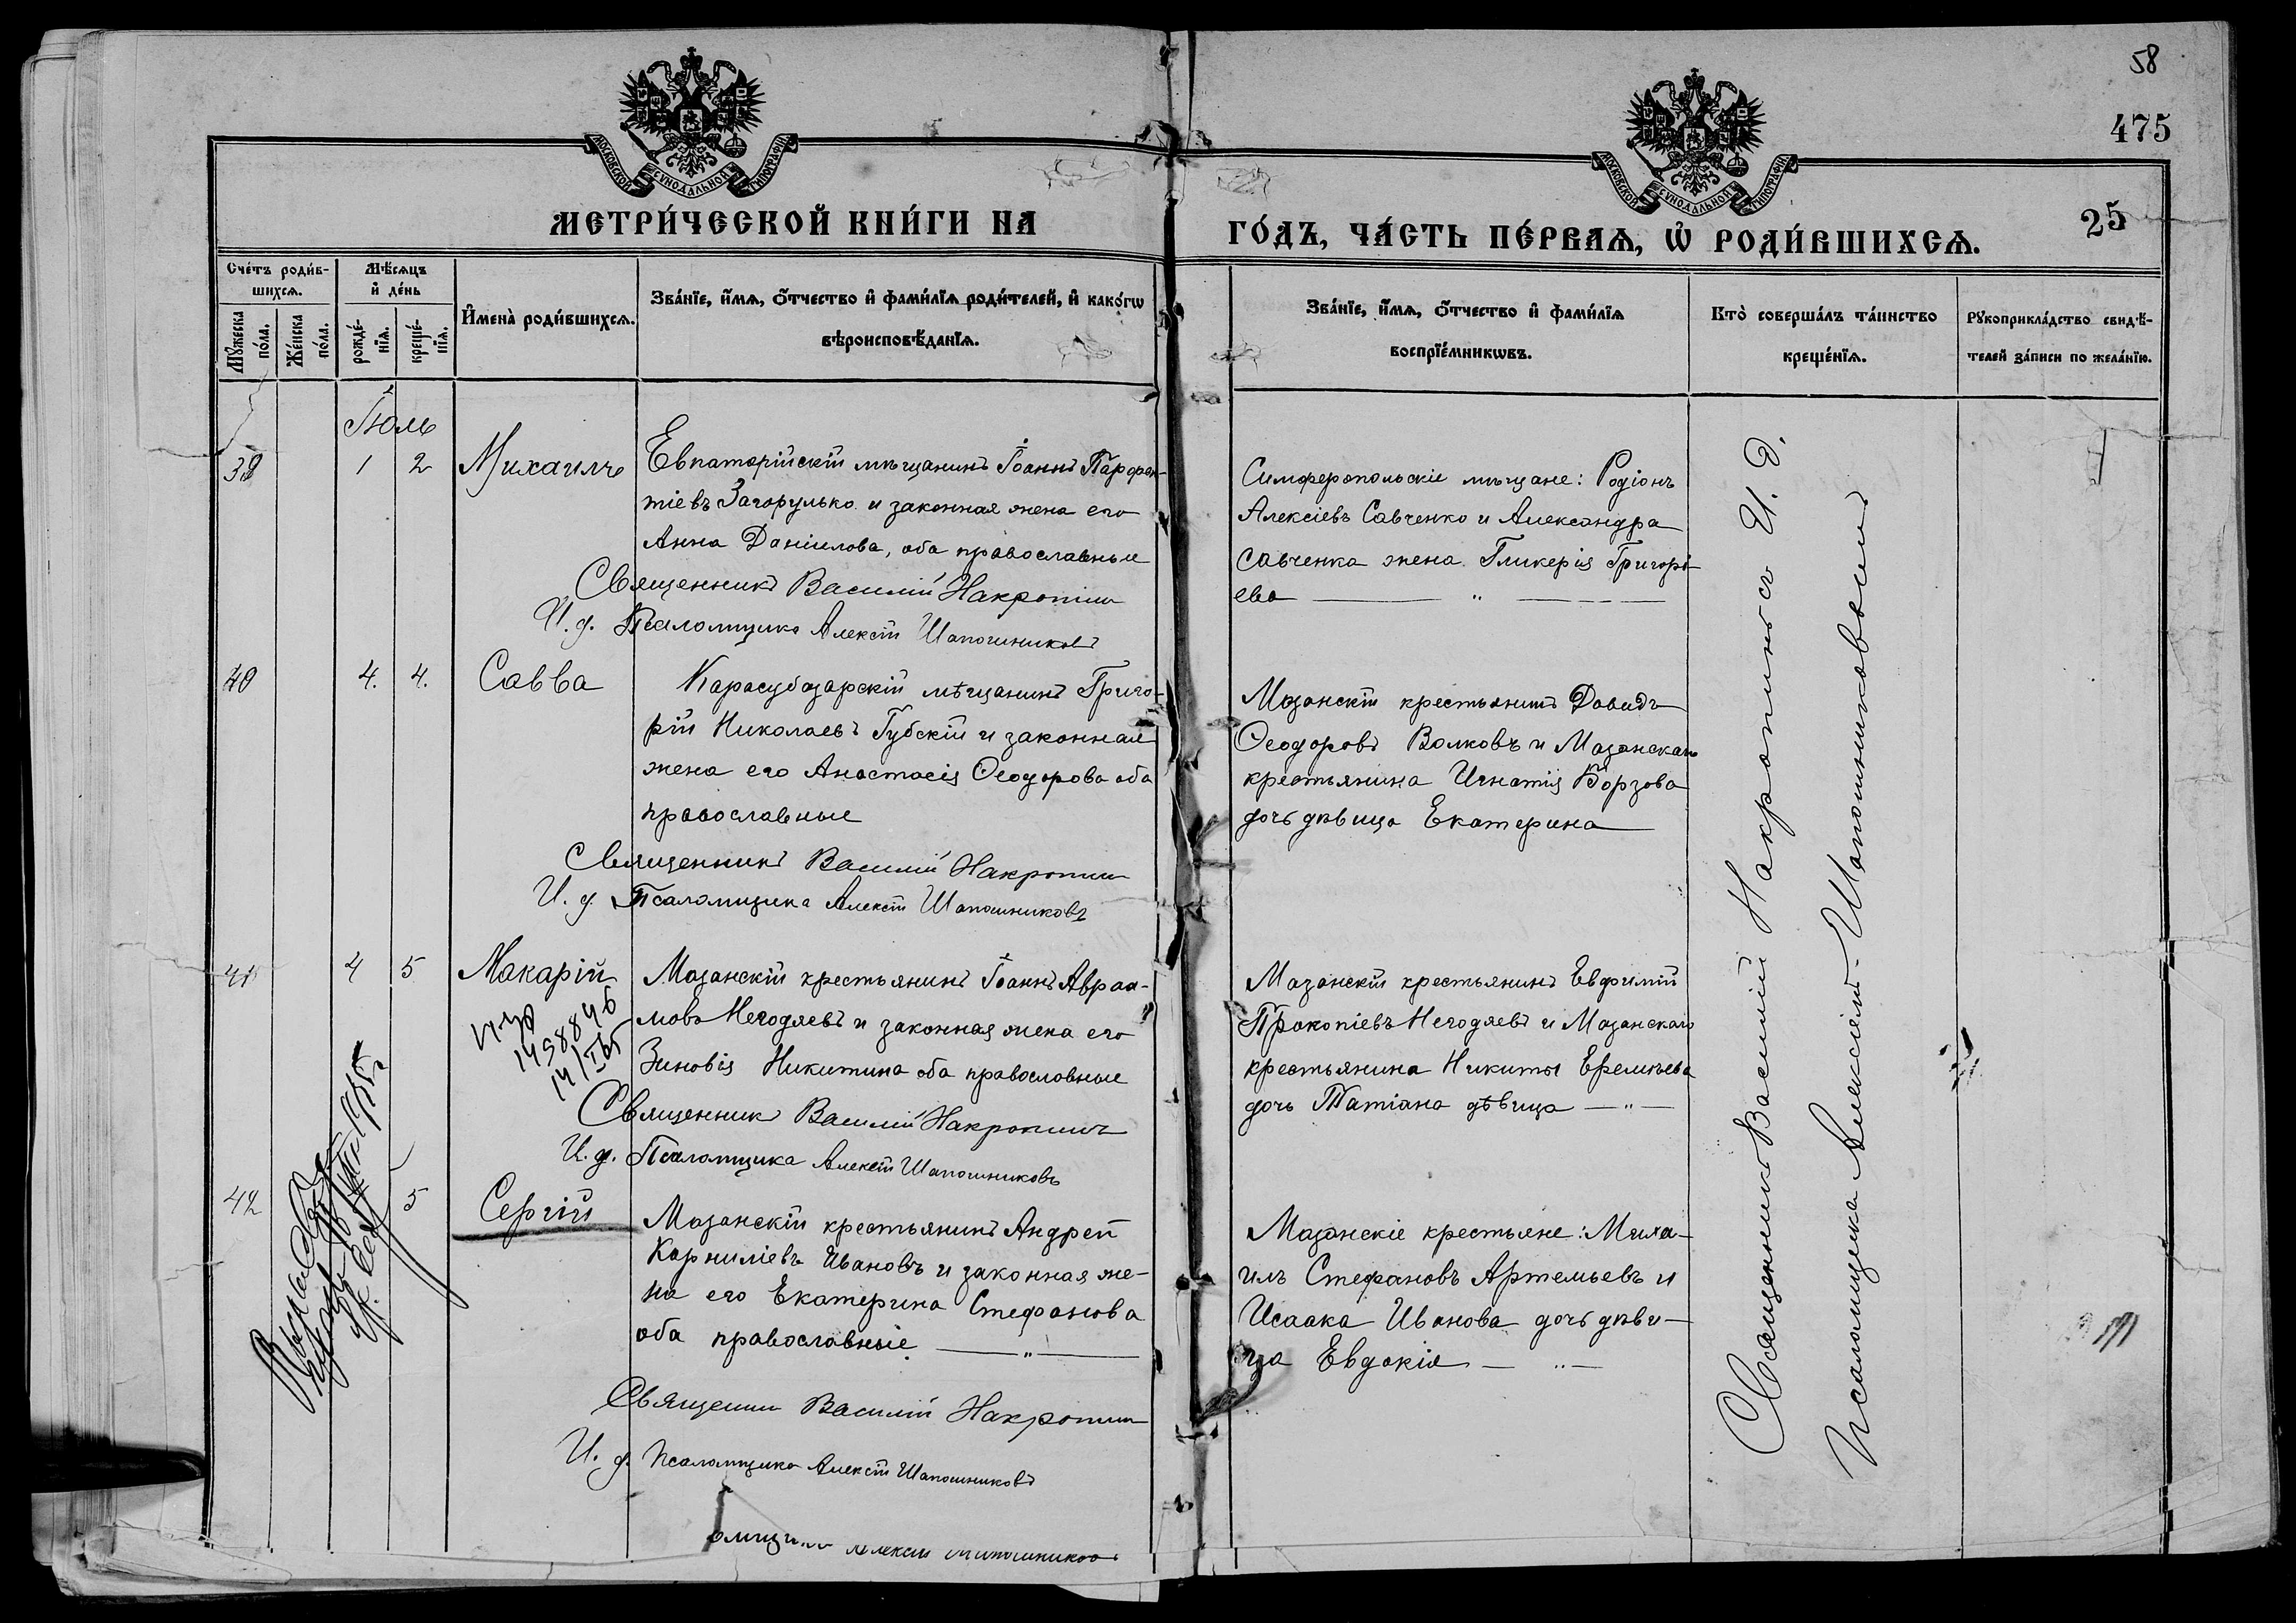 58
475
25
МОСКОВСКОЙ СѴНОДАЛЬНОЙ ТИПОГРАФІИ
МОСКОВСКОЙ СѴНОДАЛЬНОЙ ТИПОГРАФІИ
МЕТРИ́ЧЕСКОЙ КНИ́ГИ НА
ГО́ДЪ, ЧА́СТЬ ПЕ́РВАЯ, Ѡ РОДИ́ВШИХСѦ.
Сче́тъ роди́в-
шихсѧ.
Мꙋ́жеска по́ла.
Же́нска по́ла.
Мѣ́сѧцъ
и҆ де́нь
рожде́-
нїѧ.
креще́-
нїѧ.
И҆мена̀ роди́вшихсѧ.
Зва́нїе, и҆́мѧ, ѻ҆́тчество и҆ фами́лїѧ роди́телей, и҆ како́гѡ
вѣроисповѣ́данїѧ.
Зва́нїе, и҆́мѧ, ѻ҆́тчество и҆ фами́лїѧ
воспрїе́мникѡвъ.
Кто̀ соверша́лъ та́инство
креще́нїѧ.
Рꙋкоприкла́дство свидѣ́-
телей за́писи по жела́нїю.
Іюль
1 2 Михаилъ
Евпаторійскій мѣщанинъ Іоаннъ Парфен-
тіевъ Загорулько и законная жена его
Анна Даніилова, оба православные
Священникъ Василій Накропинъ
И. д. Псаломщика Алексій Шапошниковъ
Симферопольскіе мѣщане: Родіонъ
Алексіевъ Савченко и Александра
Савченка жена Гликерія Григорі-
ева — " —
40 4. 4. Савва
Карасубазарскій мѣщанинъ Григо-
рій Николаевъ Губскій и законная
жена его Анастасія Ѳеодорова оба
православные
Священникъ Василій Накропинъ
И. д. Псаломщика Алексій Шапошниковъ
Мазанскій крестьянинъ Давидъ
Ѳеодоровъ Волковъ и Мазанскаго
крестьянина Игнатія Борзова
дочь дѣвица Екатерина
41 4 5 Макарій
Мазанскій крестьянинъ Іоаннъ Авраа-
мовъ Негодяевъ и законная жена его
Зиновія Никитина оба православные
Священникъ Василій Накропинъ
И. д. Псаломщика Алексій Шапошниковъ
Мазанскій крестьянинъ Евфимій
Прокопіевъ Негодяевъ и Мазанскаго
крестьянина Никиты Еремѣева
дочь Татіана дѣвица — " —
42 5 Сергій
Мазанскій крестьянинъ Андрей
Корниліевъ Ивановъ и законная же-
на его Екатерина Стефанова
оба православные — " —
Священникъ Василій Накропинъ
И. д. Псаломщика Алексій Шапошниковъ
Мазанскіе крестьяне: Миха-
илъ Стефановъ Артемьевъ и
Исаака Иванова дочь дѣви-
ца Евдокія — " —
Священникъ Василій Накропинъ И. д.
Псаломщика Алексій Шапошниковъ